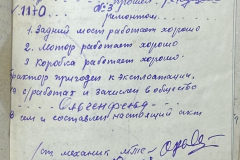 1170
№3
ремонтом.
1. Задний мост работает хорошо
2. Мотор работает хорошо
3 Коробка работает хорошо.
трактор пригоден к эксплоатации,
работах и записан в обществе
В чем и составлен настоящий акт
ст механик МТС